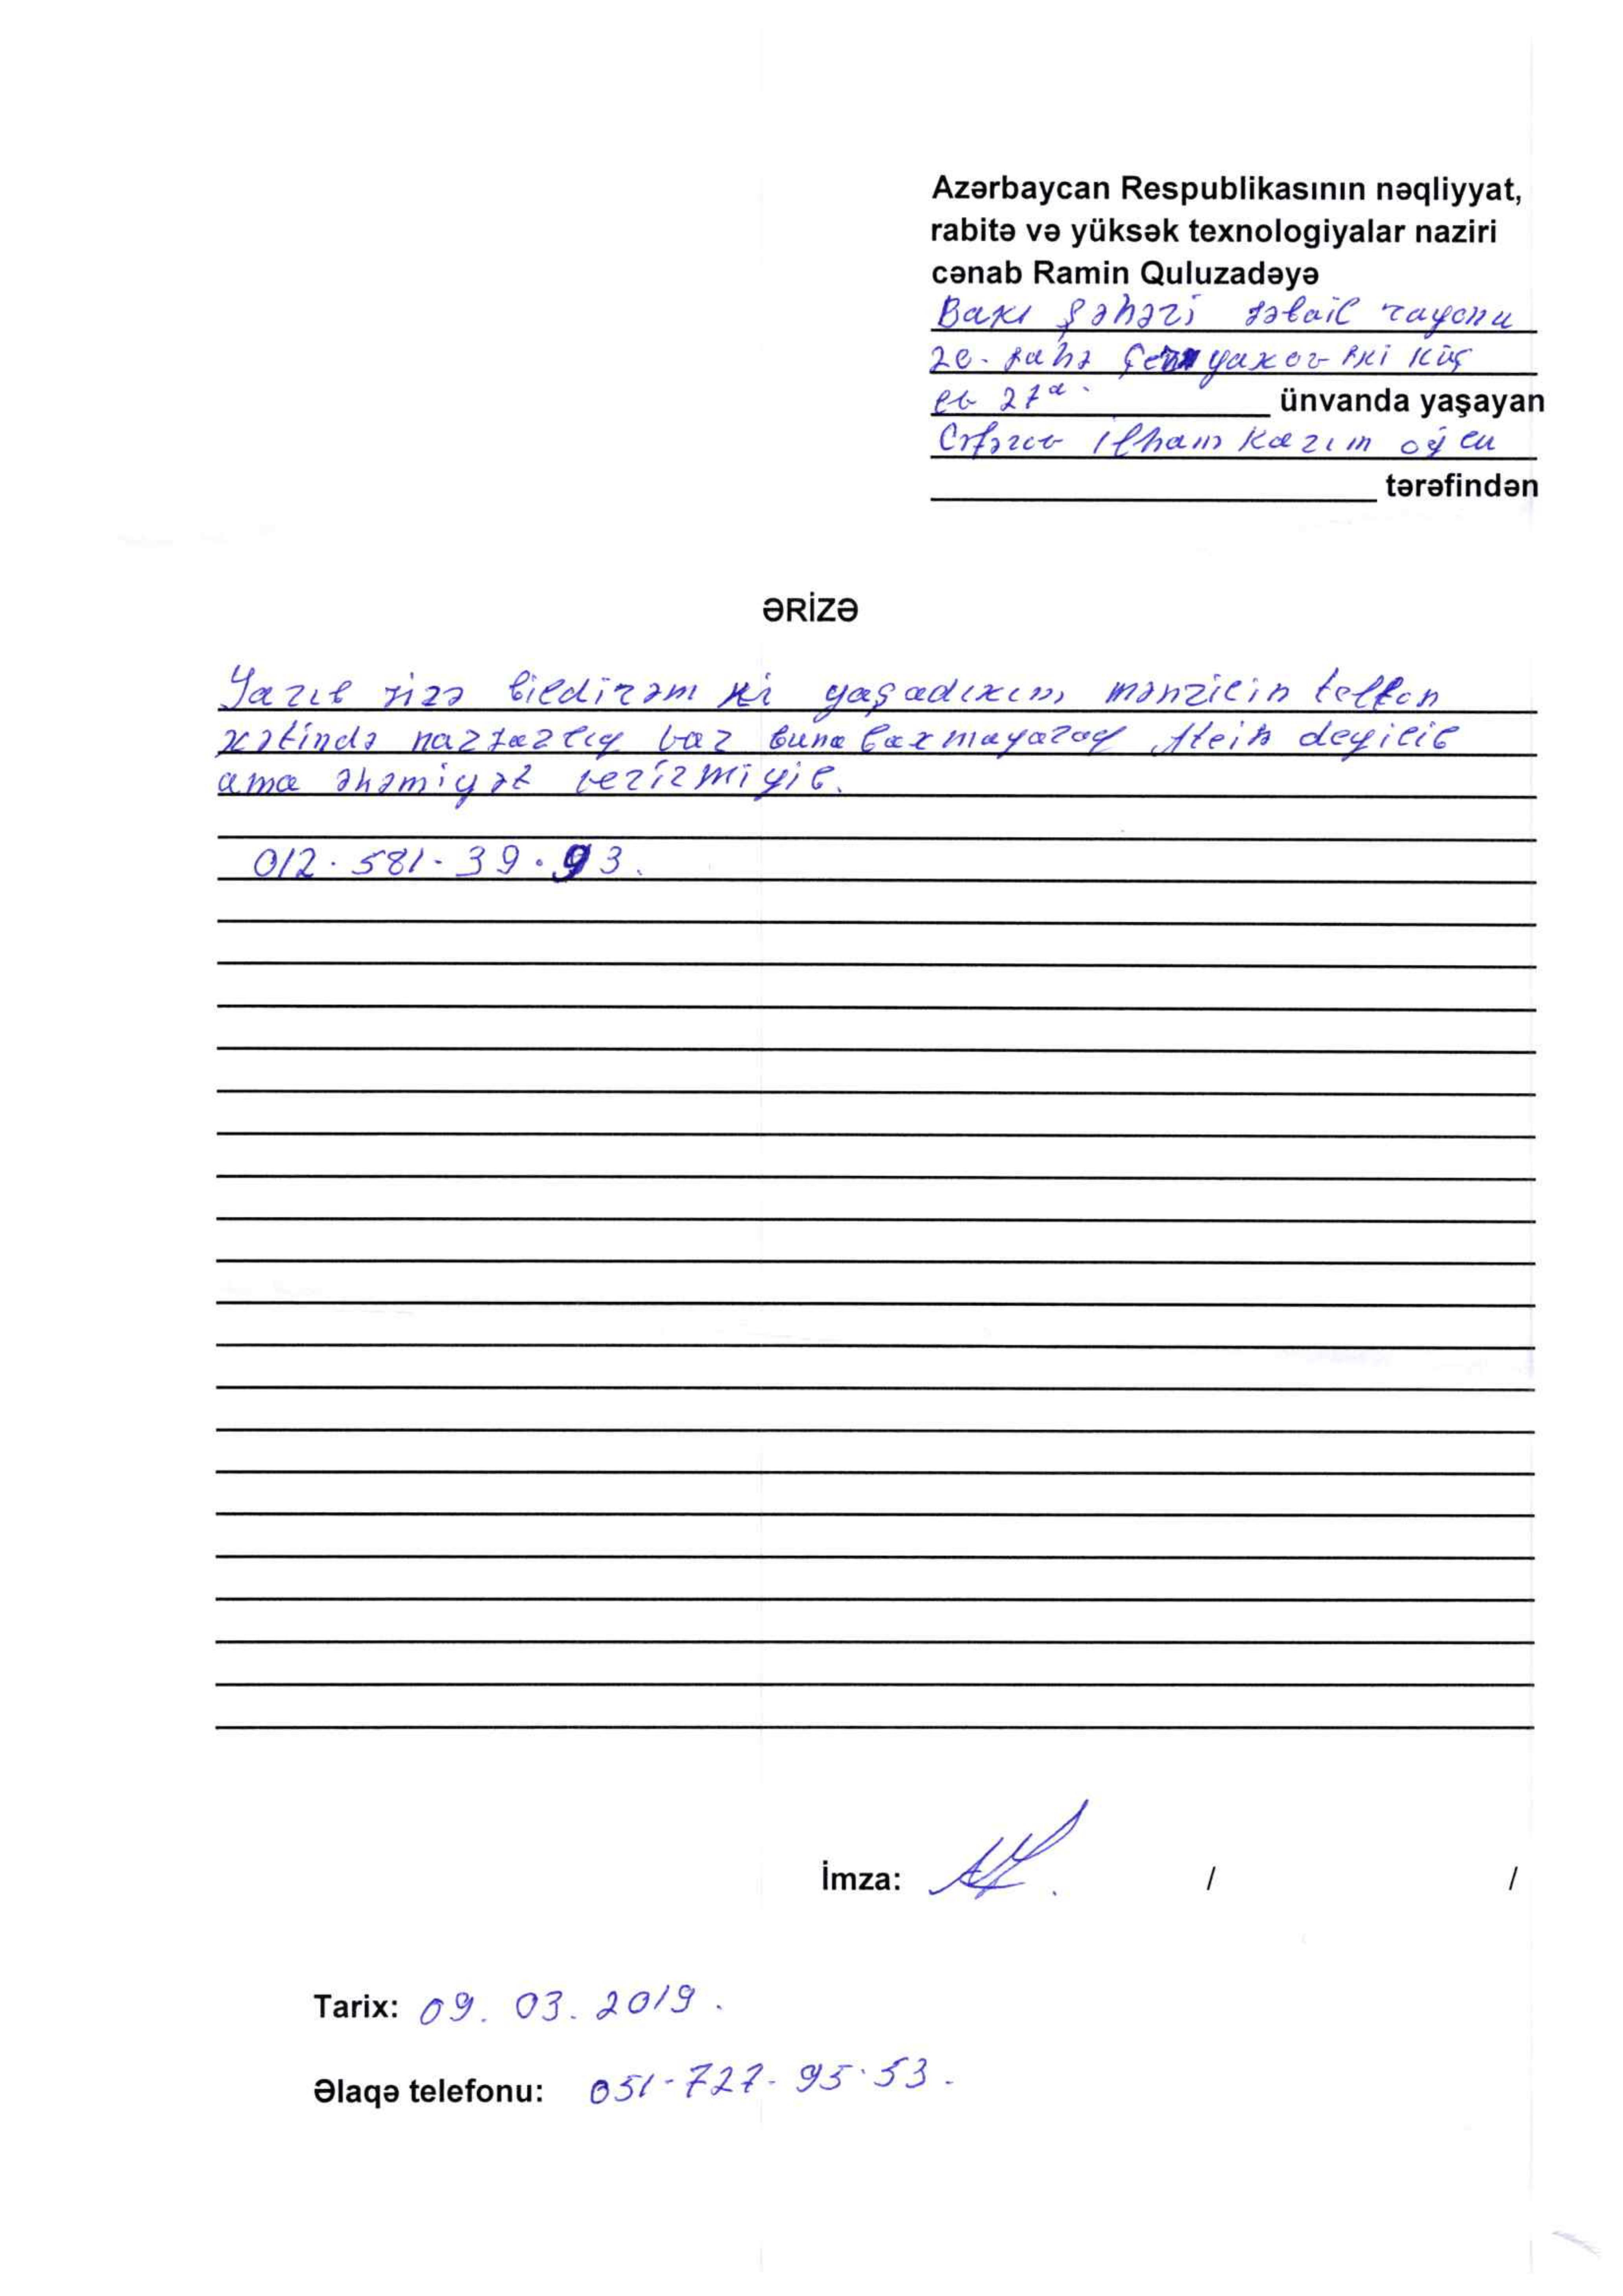 Azərbaycan Respublikasının nəqliyyat,
rabitə və yüksək texnologiyalar naziri
cənab Ramin Quluzadəyə
Bakı şəhəri səbail rayonu
20-sahə küç
ev 27a. ünvanda yaşayan
İlham Kazım oğlu
tərəfindən
ƏRİZƏ
Yazıb sizə bildirəm ki yaşadıxım mənzilin
xətində nasazlıq var buna baxmayaraq deyilib
ama əhəmiyət verirmiyib.
012-581-39-93.
İmza: / /
Tarix: 09.03.2019.
Əlaqə telefonu: 051-727-95-53.